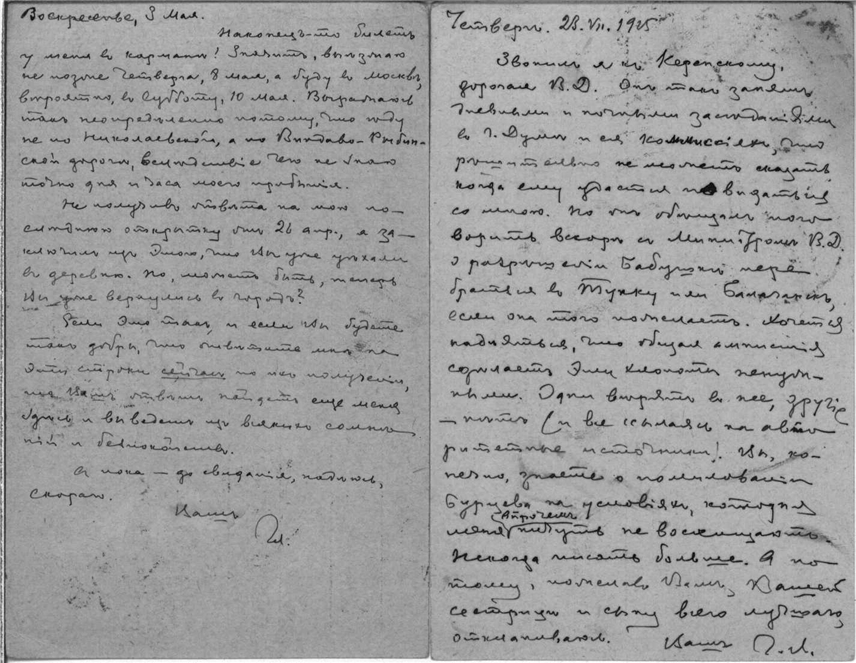 Воскресенье, 3 Мая.
Наконец-то билетъ
у меня въ карманѣ! Значитъ, выѣзжаю
не позже Четверга, 8 мая, а буду въ Москвѣ,
вѣроятно, въ Субботу, 10 Мая. Выражаюсь
такъ неопредѣленно потому, что ѣду
не по Николаевской, а по Виндаво-Рыбин-
ской дорогѣ, вслѣдствіе чего не знаю
точно дня и часа моего прибытія.
Не получивъ отвѣта на мою по-
слѣднюю открытку отъ 26 апр., я за-
ключилъ изъ этого, что Вы уже уѣхали
въ деревню. Но, можетъ быть, теперь
Вы уже вернулись въ городъ?
Если это такъ, и если Вы будете
такъ добры, что отвѣтите мнѣ на
эти строки сейчасъ по ихъ полученіи,
то Вашъ отвѣтъ найдетъ еще меня
здѣсь и выведетъ изъ всякихъ сомнѣ-
ній и безпокойствъ.
А пока — до свиданія, надѣюсь,
скораго.
Вашъ
Гл.
Четвергъ. 23.VII.1915
Звонилъ я къ Керенскому,
дорогая В.Д. Онъ такъ занятъ
дневными и ночными засѣданіями
въ Г. Думѣ и ея комиссіяхъ, что
рѣшительно не можетъ сказать,
когда ему удастся повидаться
со мною. Но онъ обѣщалъ пого-
ворить вскорѣ съ Министромъ В.Д.
о разрѣшеніи Бабушкѣ пере-
браться въ Тунку или Балаганскъ,
если она того пожелаетъ. Хочется
надѣяться, что общая амнистія
сдѣлаетъ эти хлопоты ненуж-
ными. Одни вѣрятъ въ нее, другіе
— нѣтъ (и всѣ ссылаясь на авто-
ритетные источники). Вы, ко-
нечно, знаете о помилованіи
Бурцева на условіяхъ, которыя
меня нибуть не восхищаютъ.
Некогда писать больше. А по-
тому, пожелавъ Вамъ, Вашей
сестрицѣ и сыну всего лучшаго,
откланиваюсь.
Вашъ Г.Л.